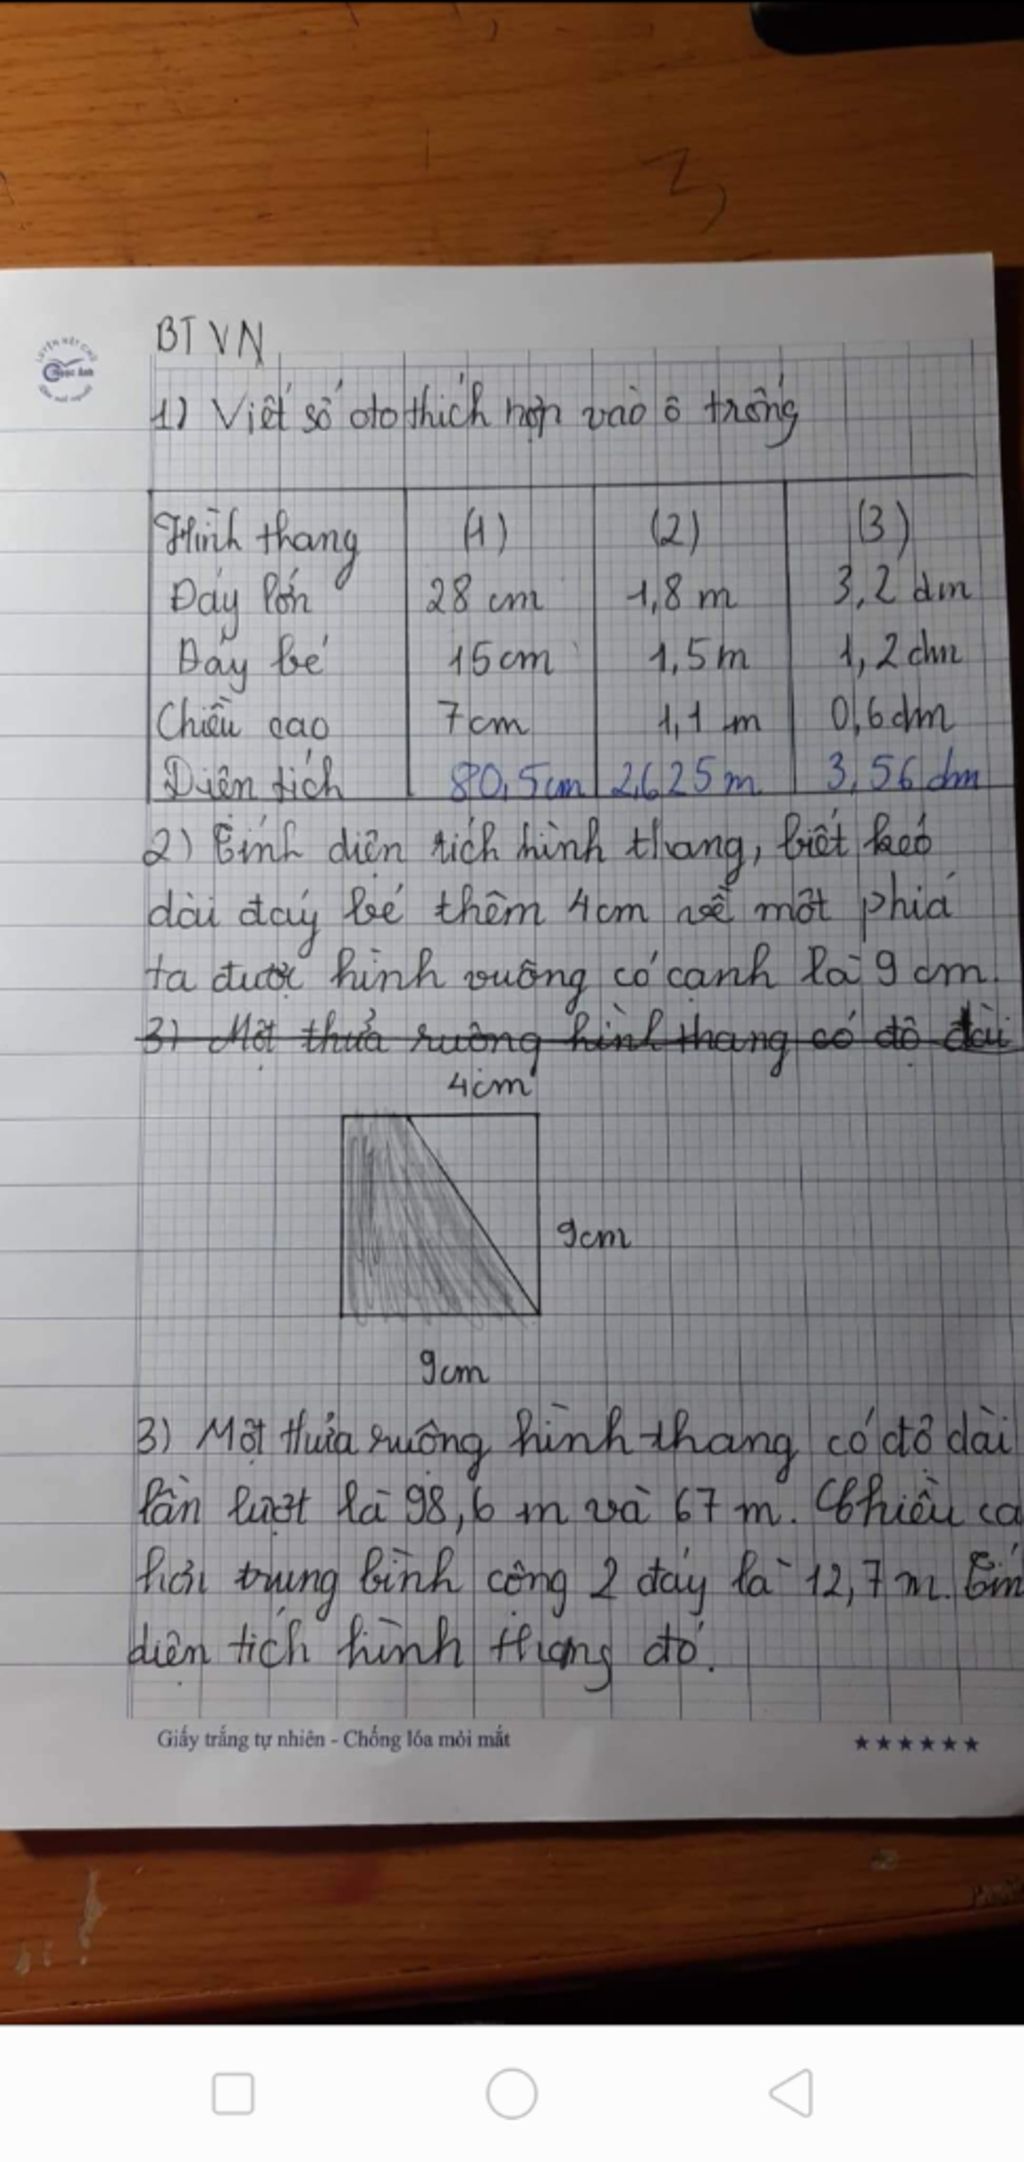 BTVN
1) Viết số đo thích hợp vào ô trống
Hình thang (1) (2) (3)
Đáy lớn 28 cm 1,8 m 3,2 dm
Đáy bé 15cm 1,5m 1,2dm
Chiều cao 7cm 1,1 m 0,6dm
Diện tích 80,5cm 2,625m 3,56 dm
2) Tính diện tích hình thang, biết kéo
dài đáy bé thêm 4cm về một phía
ta được hình vuông có cạnh là 9 cm.
3) Một thửa ruộng hình thang có độ dài
4cm
9cm
9cm
3) Một thửa ruộng hình thang có độ dài
lần lượt là 98,6 m và 67 m. Chiều ca
hơn trung bình cộng 2 đáy là 12,7 m. Tín
diện tích hình thang đó.
Giấy trắng tự nhiên - Chống lóa mỏi mắt